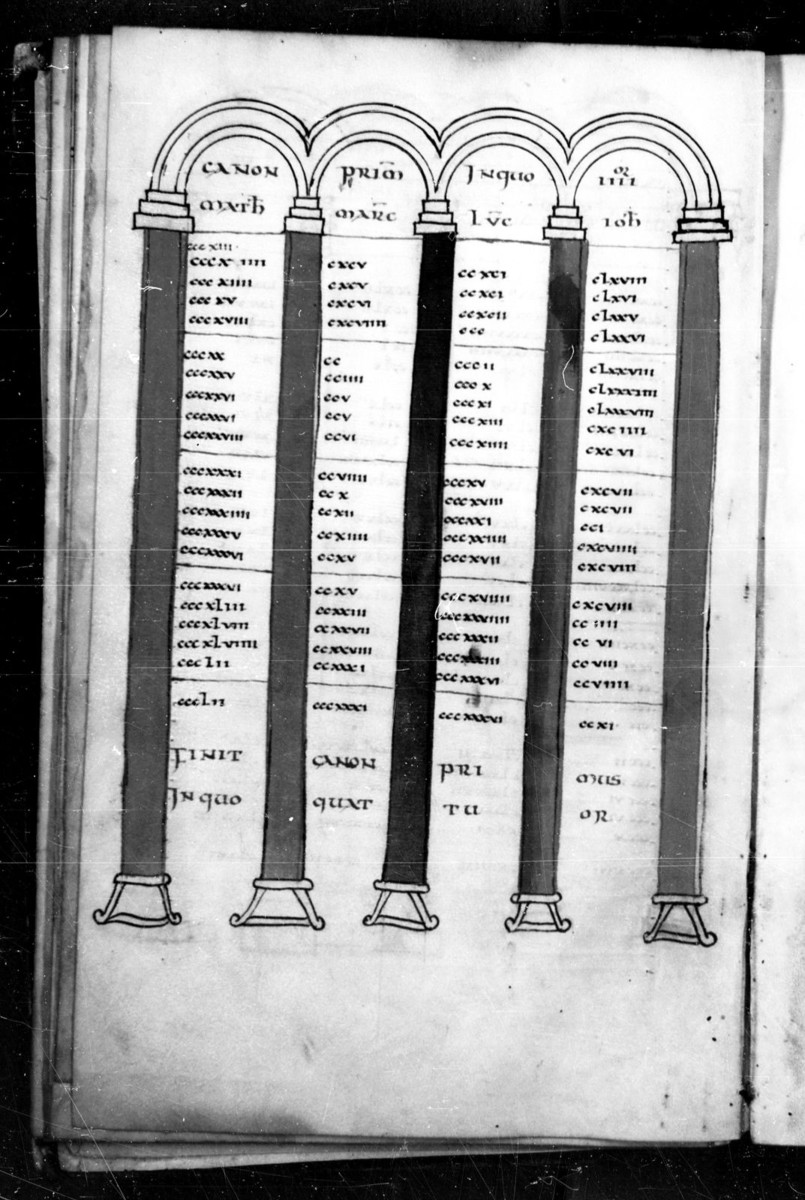 canon primͫ Inquo IIII or
math̄ marc̄ lūc ioh̄
cccxiii
cccxiiii cxcv ccxci clxviii
cccxiiii cxcv ccxci clxvi
cccxv cxcvi ccxcii clxxv
cccxviii cxcviiii ccc clxxvi
cccxx cc cccii clxxviii
cccxxv cciiii cccx clxxxiiii
cccxxvi ccv cccxi clxxxviii
cccxxvi ccv cccxiii cxciiii
cccxxviii ccvi cccxiiii cxcvi
cccxxxi ccviiii cccxv cxcvii
cccxxxii ccx cccxviii cxcvii
cccxxxiiii ccxii cccxxi cci
cccxxxv ccxiiii cccxxiiii cxcviiii
cccxxxvi ccxv cccxvii cxcviii
cccxxxvi ccxv cccxviiii cxcviii
cccxliii ccxxiii cccxxviiii cciiii
cccxlviii ccxxvii cccxxxii ccvi
cccxlviiii ccxxviii cccxxxiii ccviii
ccclii ccxxxi cccxxxvi ccviiii
ccclii ccxxxi cccxxxvi ccxi
FINIT canon pri mus
Inquo quat tu or